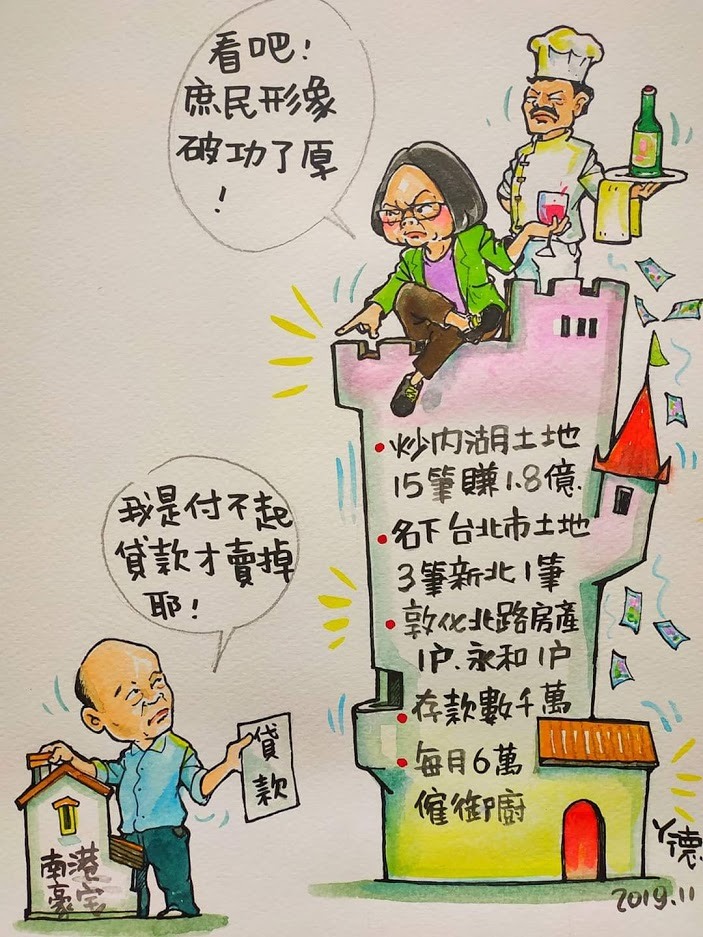 看吧!
庶民形象
破功了厚
!
我是付不起
貸款才賣掉
耶!
貸
款
南港
豪宅
•炒內湖土地
15筆賺1.8億.
•名下台北市土地
3筆新北1筆
•敦化北路房產
1户.永和1户
•存款數千萬
•每月6萬
僱御廚
丫德
2019.11